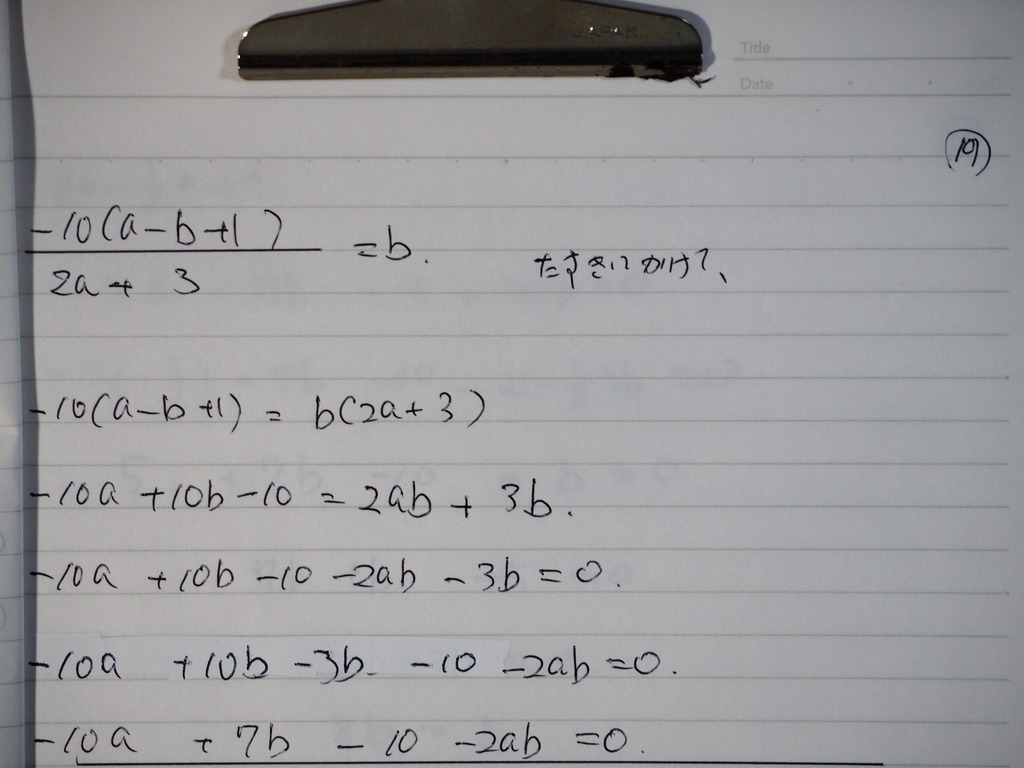 JAPAN
Title
Date
19
-10(a-b+1)
2a+3
=b.
たすきにかけて、
-10(a-b+1) = b(2a+3)
-10a +10b -10 = 2ab + 3b.
-10a +10b -10 -2ab -3b = 0.
-10a +10b -3b -10 -2ab = 0.
-10a + 7b - 10 -2ab = 0.